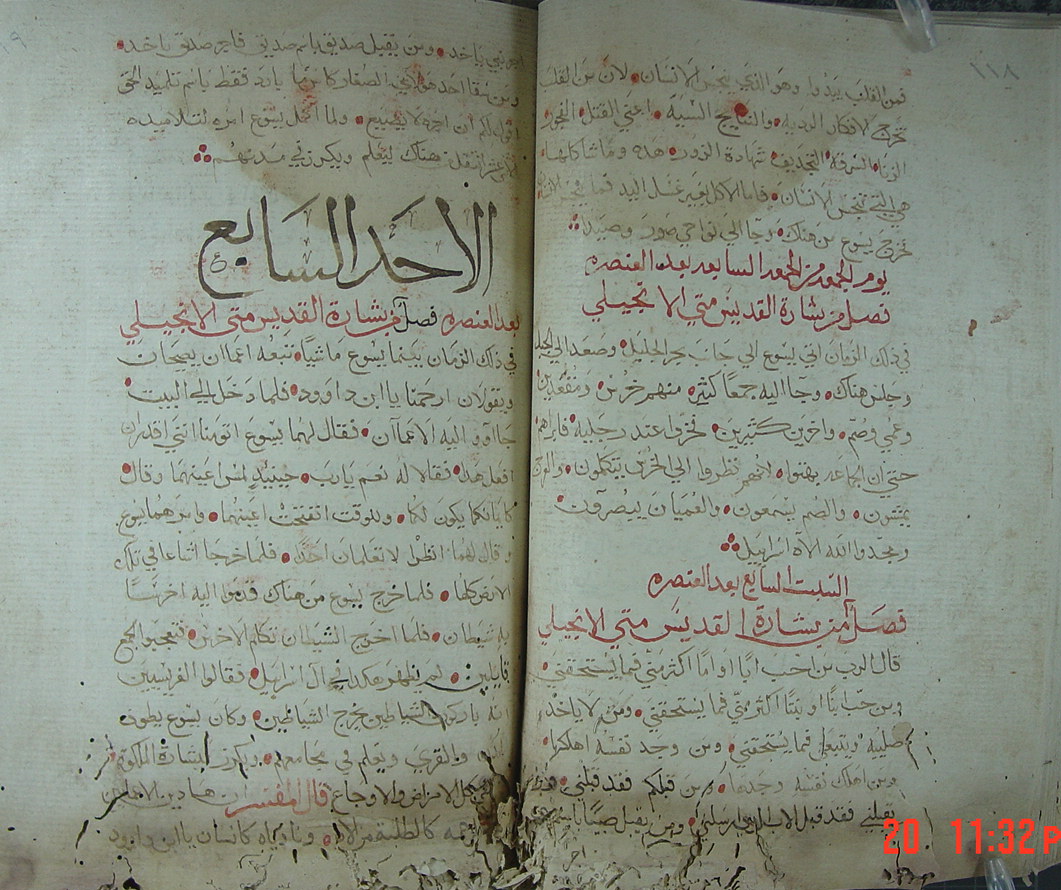 ١١٨
فمن القلب يبدوا وهو الذي ينجس الانسان لان من القلب
تخرج الافكار الرديه والنتايج السيه اعني القتل الفجور
الزنا السرقة التجديف شهادة الزور هذه وما شاكلها
هي التي تنجس الانسان فاما الاكل بغير غسل اليد فما ينجس الانسان
خرج يسوع من هناك وجا الي نواحي صور وصيدا
يوم الجمعه من الجمعه السابعه بعد العنصره
فصل من بشارة القديس متي الانجيلي
في ذلك الزمان اتي يسوع الي جانب بحر الجليل وصعد الي الجبل
وجلس هناك وجا اليه جمعا كثيره منهم خرس ومقعدين
وعمي وصم واخرين كثيرين فخروا عند رجليه فابراهم
حتي ان الجماعه بهتوا لانهم نظروا الي الخرس يتكلمون والعرج
يمشون والصم يسمعون والعميان يبصرون
ومجدوا الله الاه اسراييل
السبت السابع بعد العنصره
فصل من بشارة القديس متي الانجيلي
قال الرب من احب ابا او اما اكثر مني فما يستحقني
ومن حب ابنا او بنتا اكثر مني فما يستحقني ومن لا ياخذ
صليبه ويتبعني فما يستحقني ومن وجد نفسه اهلكها
ومن اهلك نفسه وجدها ومن قبلكم فقد قبلني
يقبلني فقد قبل الاب الذي ارسلني ومن يقبل نبيا باسم
نبي ياخد ومن يقبل صديق باسم صديق فاجر صديق ياخد
ومن سقا احد هولاي الصغار كاس ما بارد فقط باسم تلميد الحق
اقول لكم ان اجره لا يضيع ولما اكمل يسوع امره لتلاميده
الاثني عشر انتقل من هناك ليعلم ويكرز في مدنهم
الاحد السابع
بعد العنصره فصل من بشارة القديس متي الانجيلي
في ذلك الزمان بينما يسوع ماشيا تبعه اعماان يصيحان
ويقولان ارحمنا يا ابن داوود فلما دخل الي البيت
جااوو اليه الاعماان فقال لهما يسوع اتومنا انني اقدر ان
افعل هذا فقالا له نعم يارب حينيد لمس اعينهما وقال
كايمانكما يكون لكما وللوقت انفتحت اعينهما وانتهرهما يسوع
وقال لهما انظرا لا تعلمان احدا فلما خرجا اشاعا في تلك
الارض كلها فلما خرج يسوع من هناك قدموا اليه اخرسا
به شيطان فلما اخرج الشيطان تكلم الاخرس فتعجبوا الجمع
قايلين لم يظهر هكدا في ال اسراييل فقالوا الفريسيين
انه باركون الشياطين يخرج الشياطين وكان يسوع يطوف
والقري ويعلم في مجامعهم ويكرز ببشارة الملكوت
كل الامراض والاوجاع قال المفسر ان هادين الاعمان
20 11:32 P